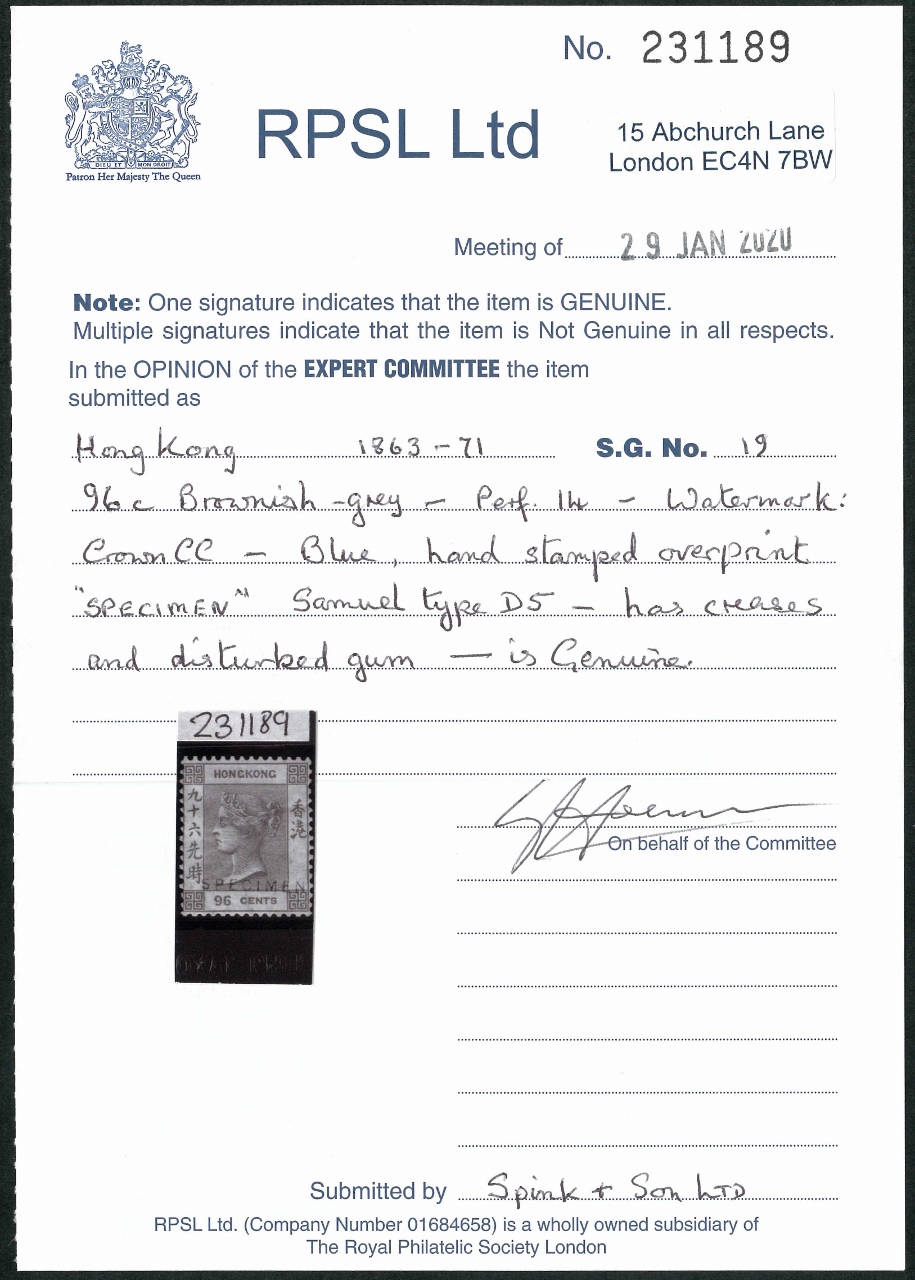 No. 231189
RPSL Ltd
15 Abchurch Lane
London EC4N 7BW
DIEU ET MON DROIT
Patron Her Majesty The Queen
Meeting of 29 JAN 2020
Note: One signature indicates that the item is GENUINE.
Multiple signatures indicate that the item is Not Genuine in all respects.
In the OPINION of the EXPERT COMMITTEE the item
submitted as
Hong Kong 1863-71 S.G. No. 19
96c Brownish-grey - Perf. 14 - Watermark:
Crown CC - Blue, hand stamped overprint
"SPECIMEN" Samuel type D5 - has creases
and disturbed gum — is Genuine.
231189
HONGKONG
九十六先時
香港
SPECIMEN
96 CENTS
On behalf of the Committee
Submitted by Spink + Son LTD
RPSL Ltd. (Company Number 01684658) is a wholly owned subsidiary of
The Royal Philatelic Society London